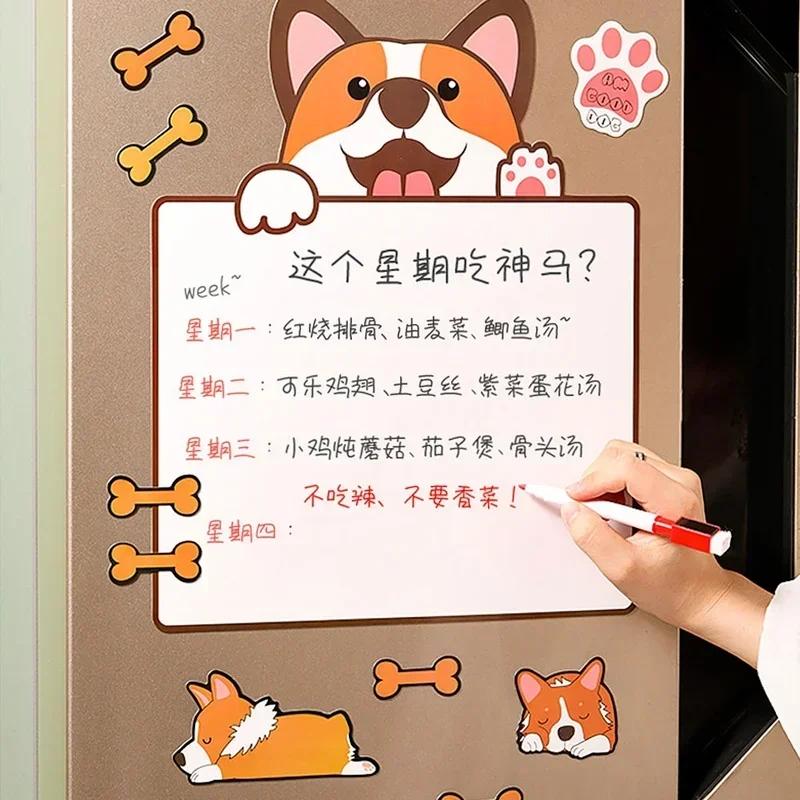 AM
GOOD
DOG
这个星期吃神马？
week~
星期一：红烧排骨、油麦菜、鲫鱼汤~
星期二：可乐鸡翅、土豆丝、紫菜蛋花汤
星期三：小鸡炖蘑菇、茄子煲、骨头汤
不吃辣、不要香菜！
星期四：